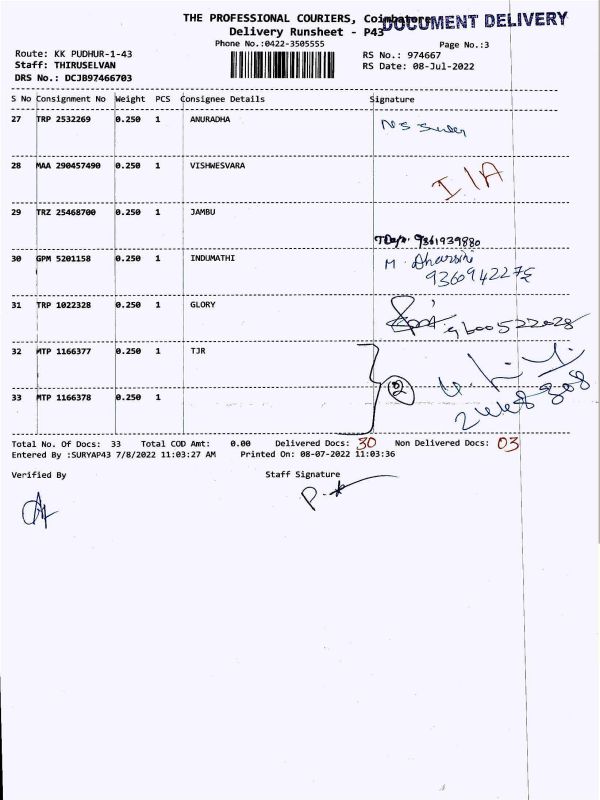 THE PROFESSIONAL COURIERS, Coimbatore
DOCUMENT DELIVERY
Delivery Runsheet - P43
Phone No.:0422-3505555
Page No.:3
Route: KK PUDHUR-1-43
RS No.: 974667
Staff: THIRUSELVAN
RS Date: 08-Jul-2022
DRS No.: DCJB97466703
S No Consignment No Weight PCS Consignee Details Signature
27 TRP 2532269 0.250 1 ANURADHA
28 MAA 290457490 0.250 1 VISHWESVARA
29 TRZ 25468700 0.250 1 JAMBU
9361939880
30 GPM 5201158 0.250 1 INDUMATHI M. Dharsini
31 TRP 1022328 0.250 1 GLORY 9600522028
32 MTP 1166377 0.250 1 TJR
2
33 MTP 1166378 0.250 1
Total No. Of Docs: 33 Total COD Amt: 0.00 Delivered Docs: 30 Non Delivered Docs: 03
Entered By :SURYAP43 7/8/2022 11:03:27 AM Printed On: 08-07-2022 11:03:36
Verified By Staff Signature